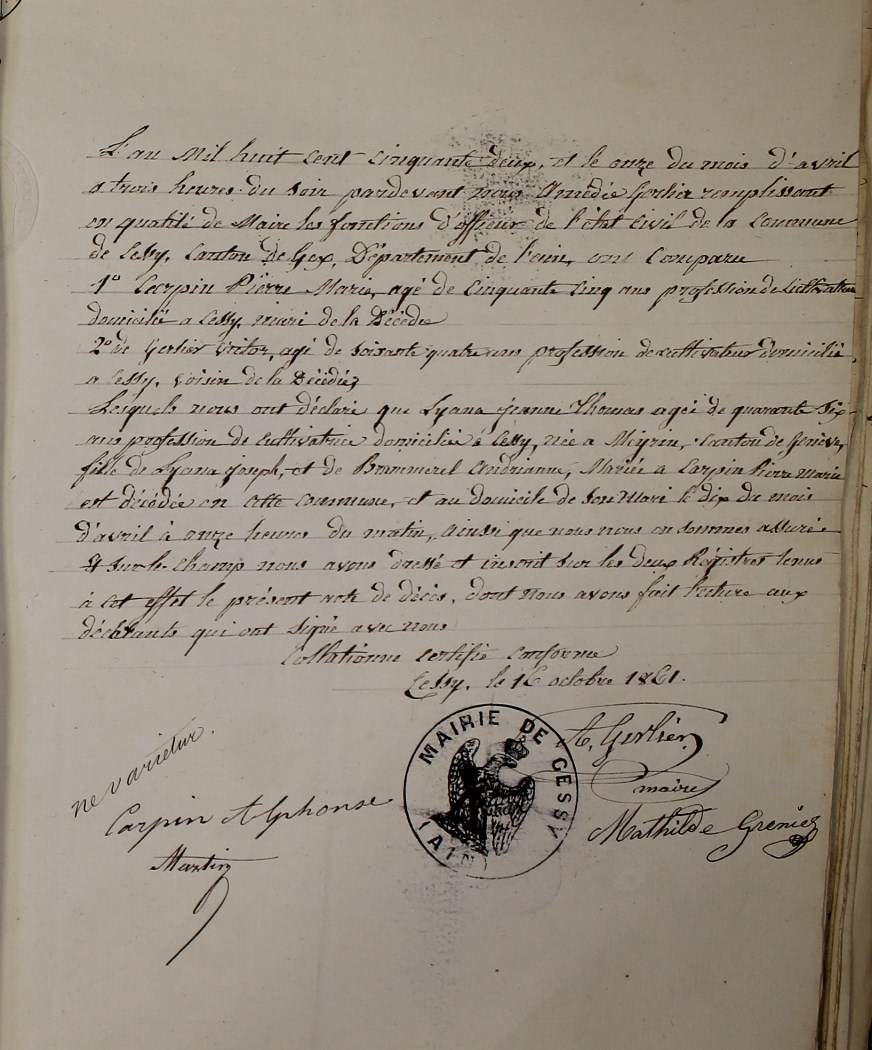 L'an Mil huit cent cinquante deux, et le onze du mois d'avril
a trois heures du soir pardevant nous Amédée Gerlier remplissant
en qualité de Maire les fonctions d'officier de l'état civil de la commune
de Cessy, Canton de Gex, Département de l'ain, ont Comparu
1º Carpin Pierre Marie, agé de cinquante cinq ans profession de Cultivateur
domicilié a Cessy, mari de la Décédée
2º de Gerlier Victor, agé de soixante quatre ans profession de cultivateur domicilié
a Cessy, voisin de la Décédée,
Lesquels nous ont déclaré que Lyana jeanne Thomas agée de quarante six
ans profession de cultivatrice domiciliée à Cessy, née a Meyrin, Canton de Genève,
fille de Lyana joseph, et de Andrianne, Mariée a Carpin Pierre Marie
est décédée en cette commune, et au domicile de son mari le dix du mois
d'avril à onze heures du matin, ainsi que nous nous en sommes assuré
Et sur-le-champ nous avons dressé et inscrit sur les deux Régistres tenus
à cet effet le présent acte de décès, dont nous avons fait lecture aux
déclarants qui ont signé avec nous
Collationné certifié conforme
Cessy, le 16 octobre 1861.
A. Gerlier
maire
MAIRIE DE CESSY
(AIN)
ne varietur.
Carpin Alphonse
Mathilde Grenier
Martin